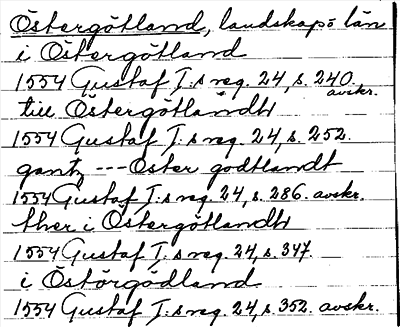 Östergötland, landskap o län
i Östergötland
1554 Gustaf I:s reg. 24, s. 240. avskr.
till Östergötlandh
1554 Gustaf I:s reg. 24, s. 252.
gantz --- Öster godtlandt
1554 Gustaf I:s reg. 24, s. 286. avskr.
ther i Östergötlandh
1554 Gustaf I:s reg. 24, s. 347.
i Östörgödland
1554 Gustaf I:s reg. 24, s. 352. avskr.